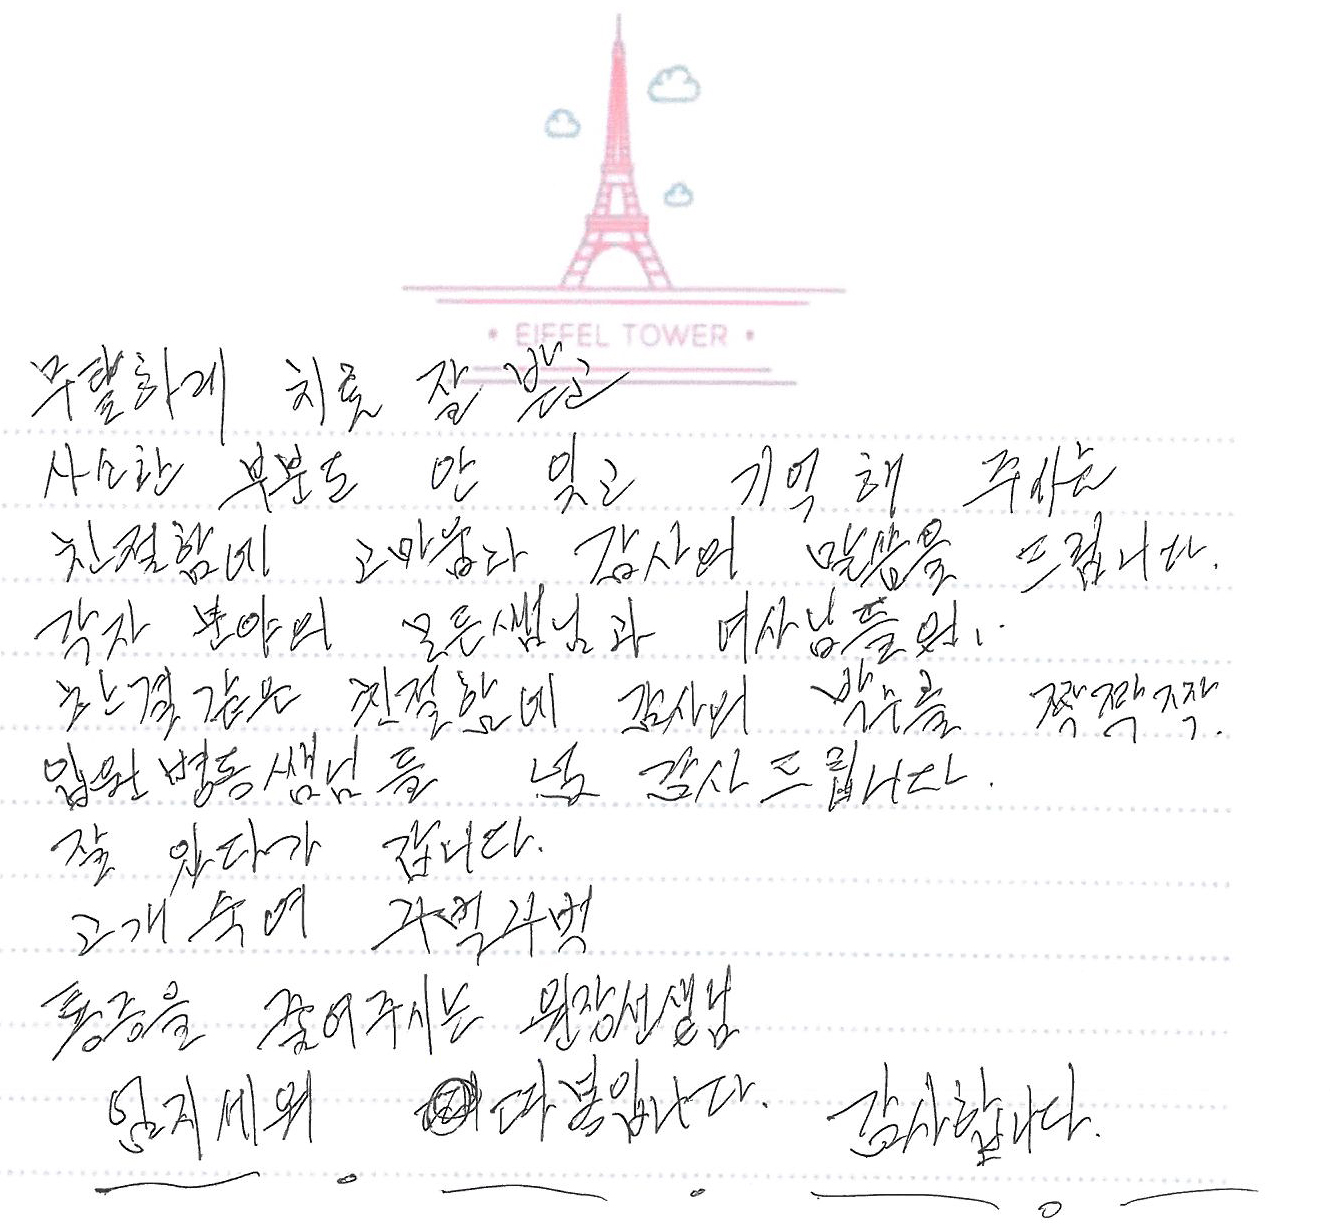 EIFFEL TOWER
무탈하게 치료 잘 받고
사소한 부분도 안 잊고 기억해 주시는
친절함에 고마웁다 감사의 말씀을 드립니다.
각자 분야의 모든 쌤님과 여사님들의..
한결같은 친절함에 감사의 박수를 짝짝짝.
입원병동 쌤님들 넘 감사드립니다.
잘 있다가 갑니다.
고개숙여 꾸벅꾸벅
통증을 줄여주시는 원장선생님
엄지세워 따봉입니다. 감사합니다.